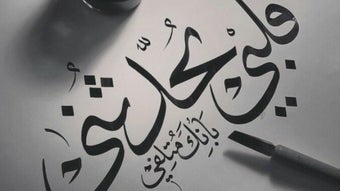 قلبي يحدّثني
بأنك مُتلفي